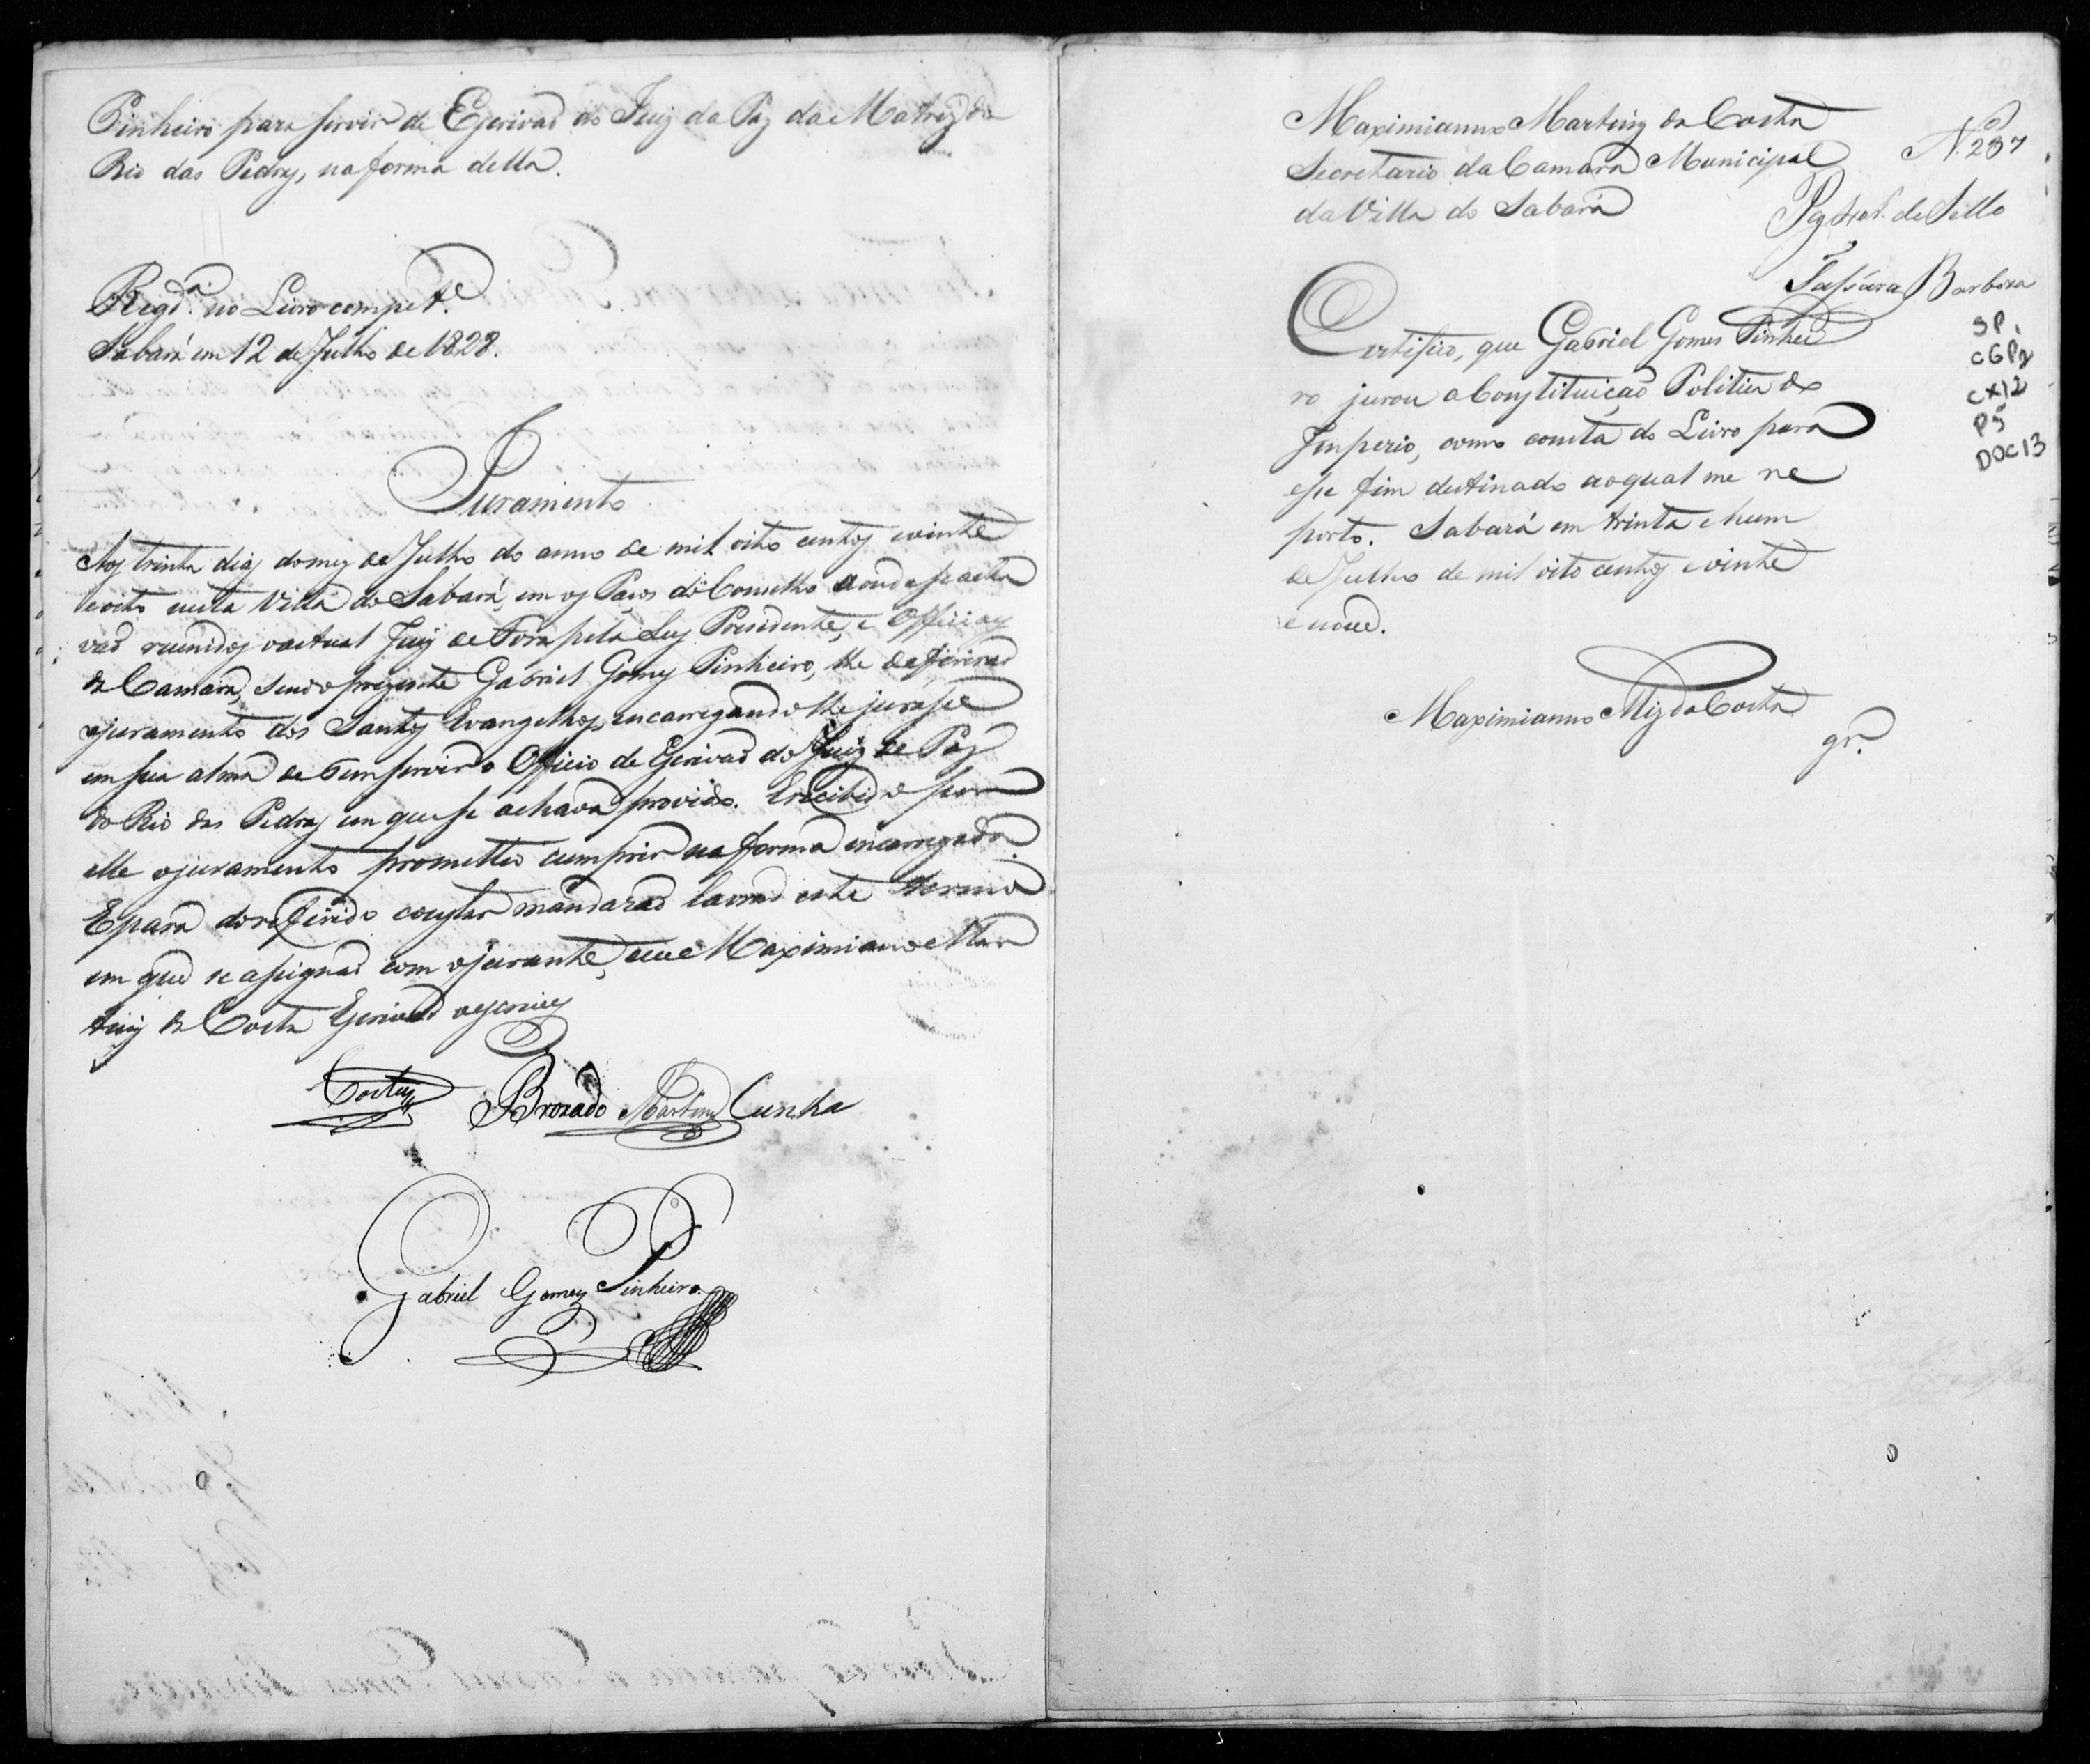 Pinheiro para servir de Escrivaõ do Juiz da Paz da Matriz do
Rio das Pedras, na forma della.
Regd.ª no Livro compet.e
Sabará em 12 de Julho de 1828.
Juramento
Aos trinta dias do mez de Julho do anno de mil oito centos e vinte
e oito nesta Villa do Sabará, em os Paços do Conselho aonde se acha
vaõ reunidos o actual Juiz de Fora pela Ley Presidente, e Officiaes
da Camara, sendo prezente Gabriel Gomes Pinheiro, lhe deferiraõ
o juramento dos Santos Evangelhos, encarregandolhe jurasse
em sua alma de bem servir o Officio de Escrivaõ do Juiz de Paz
do Rio das Pedras em que se achava provido. E recibido por
elle o juramento prometteo cumprir na forma encarregada.
E para do referido constar mandaraõ lavrar este termo
em que se assignaõ com o jurante, e eu Maximiano Mar
tins da Costa Escrivaõ o escrevy
Brozado Martins Cunha
Gabriel Gomes Pinheiro
Maximianno Martins da Costa
Secretario da Camara Municipal
da Villa do Sabará
N.º 237
Pg de Sello
Barboza
SP,
CGP2
CX12
P5
DOC13
Certifico, que Gabriel Gomes Pinhei
ro jurou a Constituiçaõ Politica do
Imperio, como consta do Livro para
esse fim destinado ao qual me re
porto. Sabará em trinta e hum
de Julho de mil oito centos e vinte
e nove.
Maximianno Miz da Costa
gr.